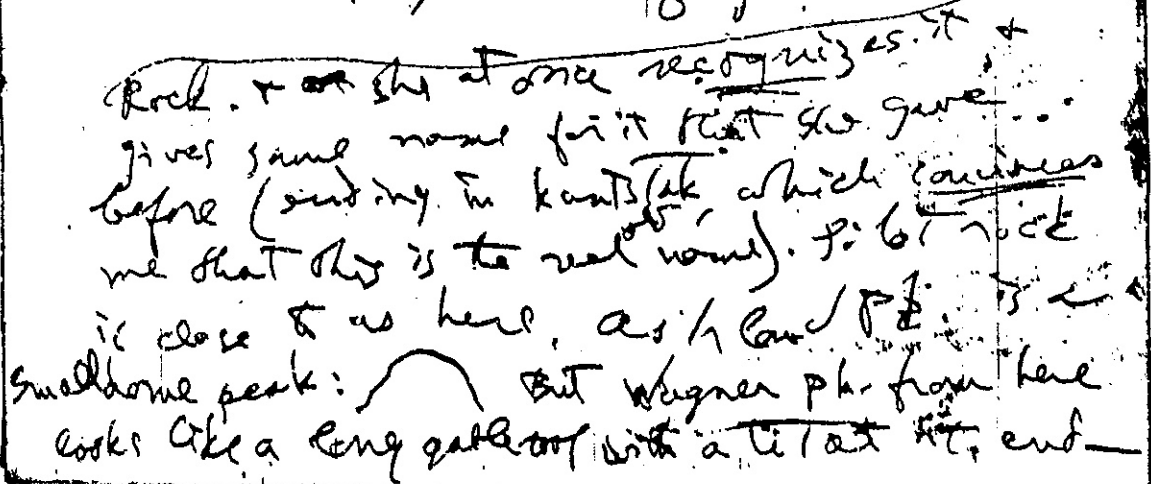 Rock. + she at once recognizes it +
gives same name for it that she gave
before (ending in , which convinces
me that this is the real name). rock
is close to us here. Ashland Pk. is a
small dome peak: But Wagner pk. from here
looks like a long gable roof with a at rt. end—